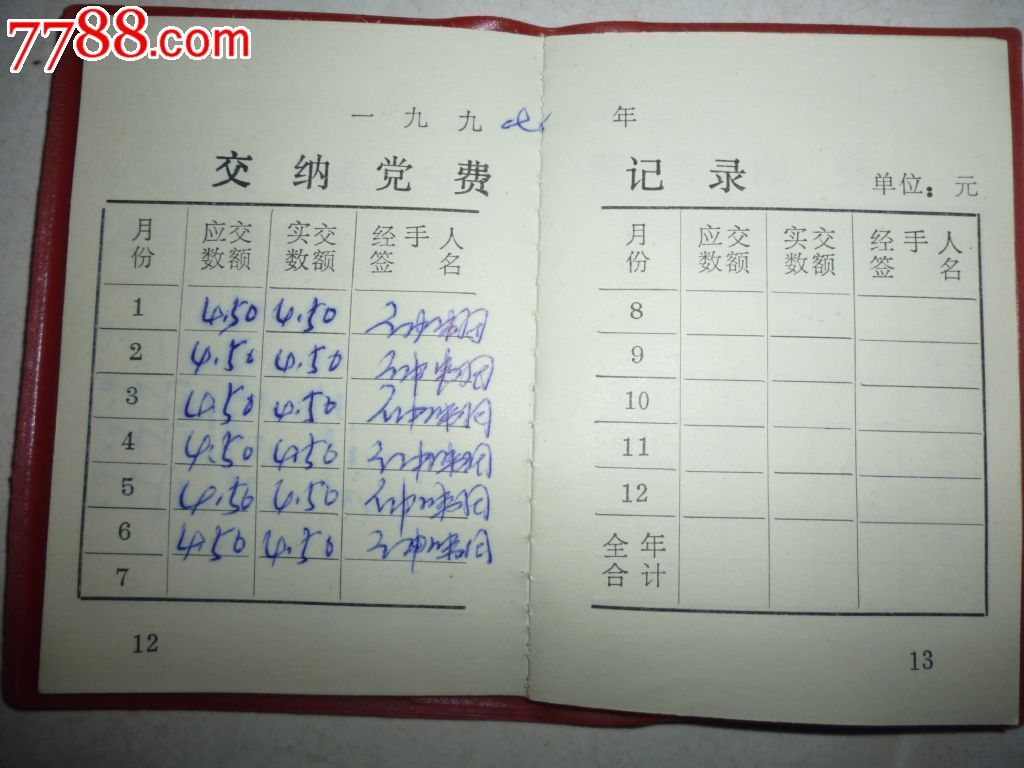 7788.com
一九九七年
交纳党费记录
单位：元
月份 应交数额 实交数额 经手人签名
1 4.50 4.50
2 4.50 4.50
3 4.50 4.50
4 4.50 4.50
5 4.50 4.50
6 4.50 4.50
7
12
月份 应交数额 实交数额 经手人签名
8
9
10
11
12
全年合计
13